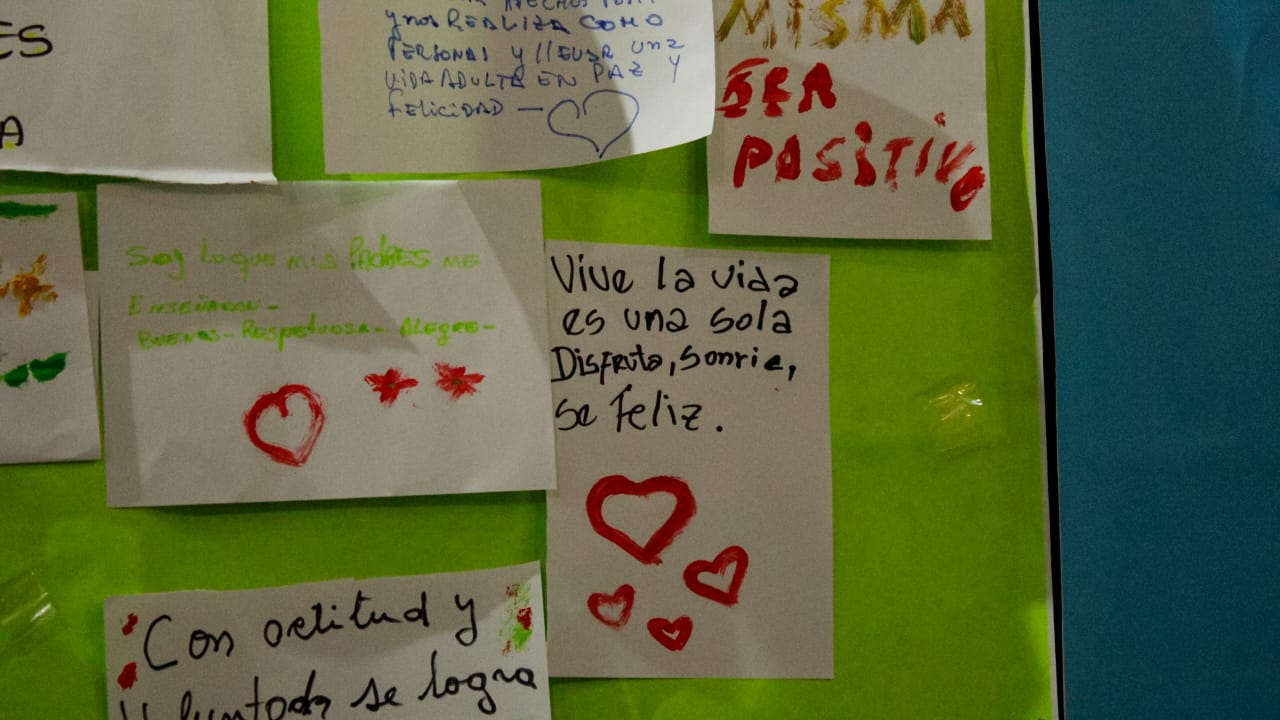 ES
A
y nos REALIZA COMO
PERSONAS y llevar una
VIDA ADULTA EN PAZ Y
FELICIDAD —
MISMA
SER
POSITIVO
Soy lo que mis PADRES ME
ENSEÑARON-
BUENAS- Respetuosa- ALEGRE-
Vive la vida
es una sola
Disfruta, sonrie,
se feliz.
Con actitud y
se logra